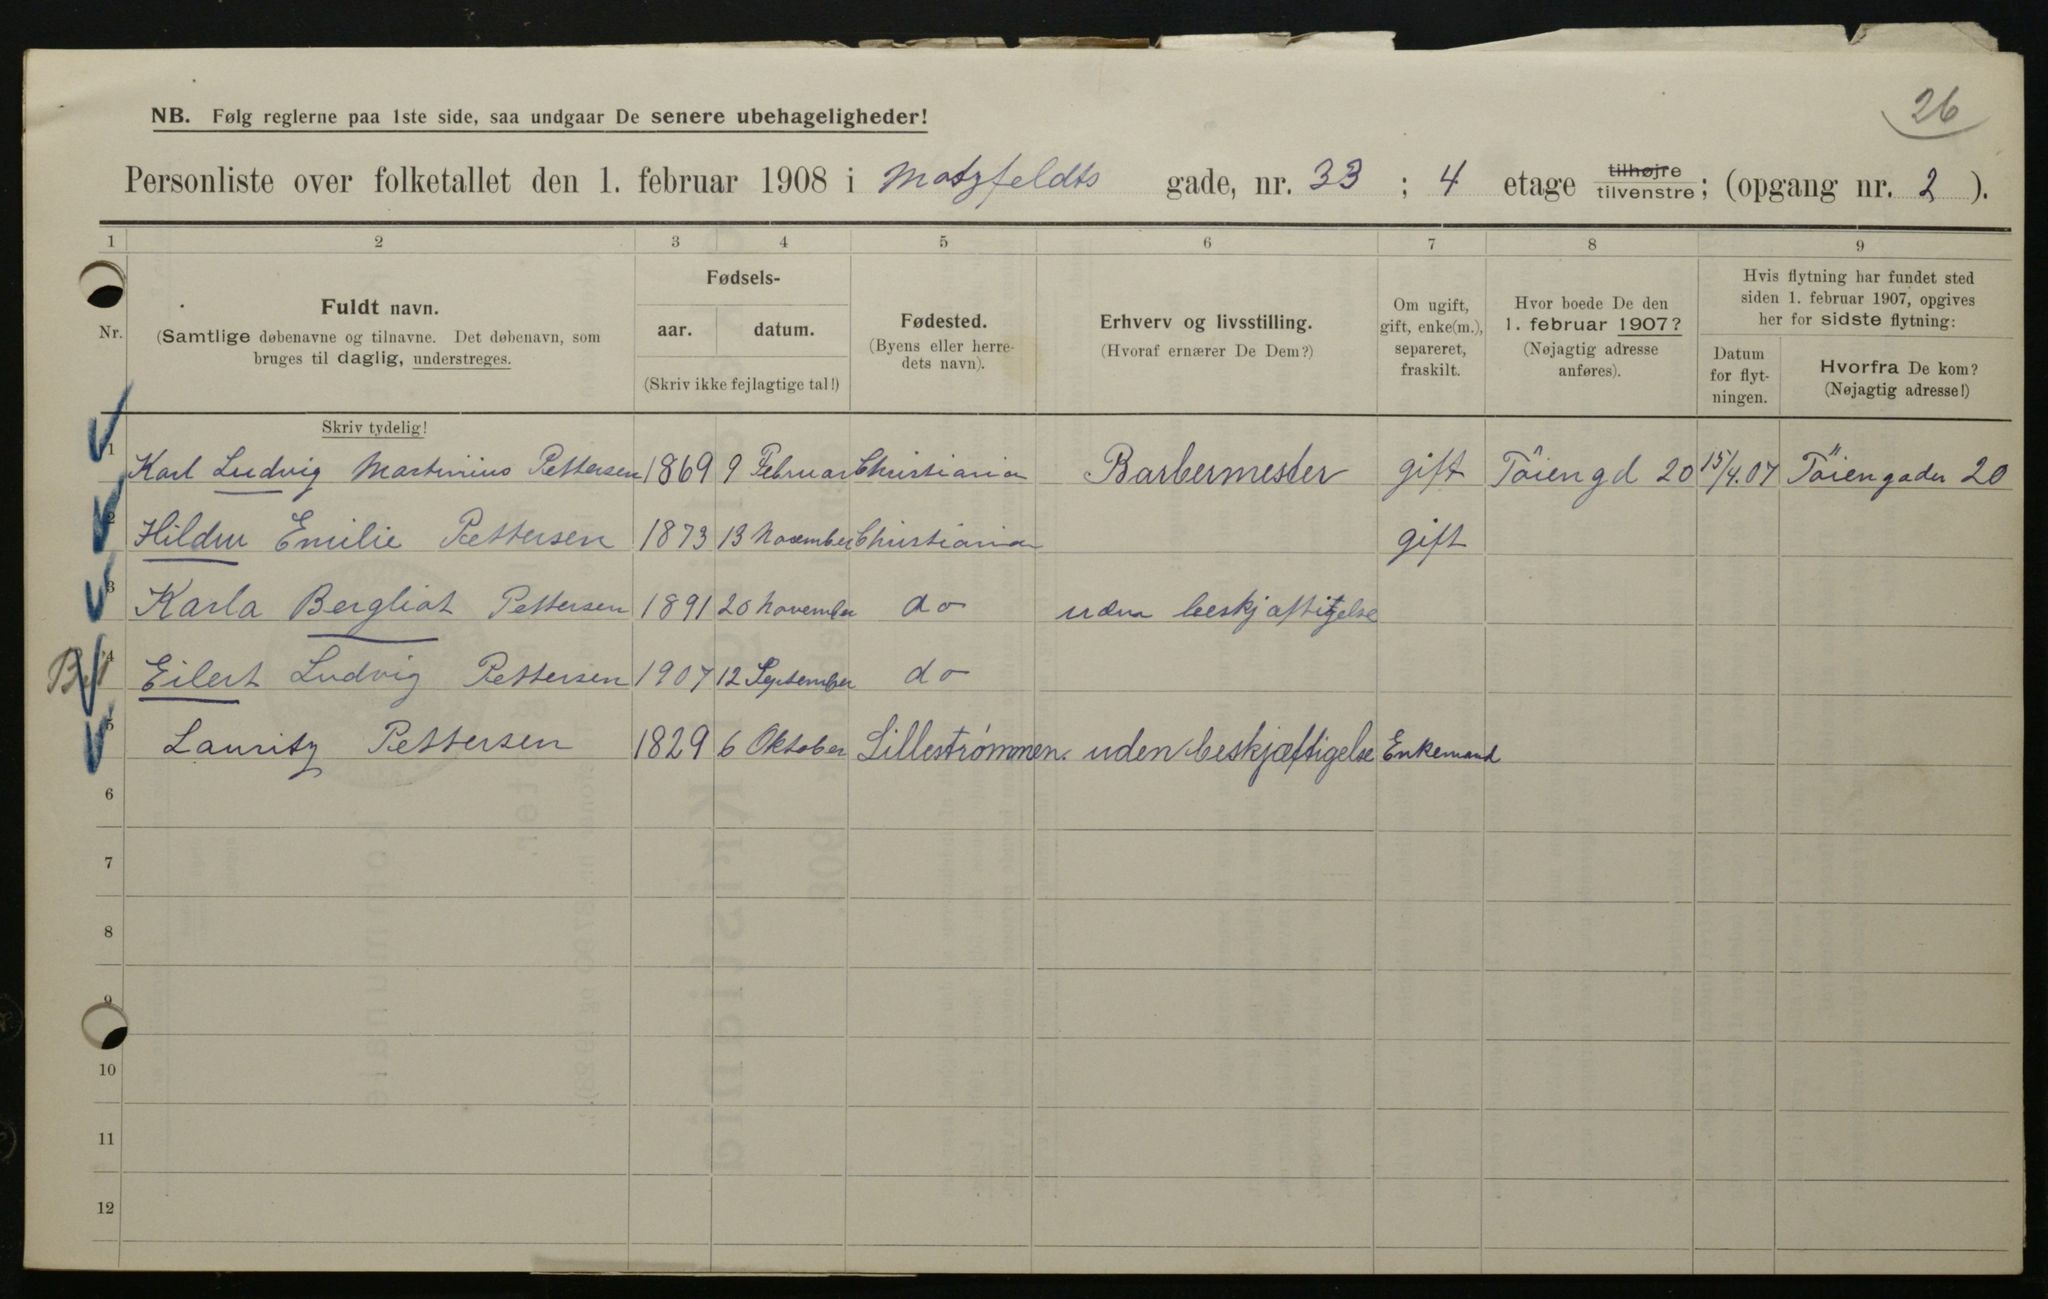 26
NB. Følg reglerne paa 1ste side, saa undgaar De senere ubehageligheder!
Personliste over folketallet den 1. februar 1908 i Motzfeldts gade, nr. 33 ; 4 etage tilhøjre tilvenstre ; (opgang nr. 2 ).
1 2 3 4 5 6 7 8 9
Nr.
Fuldt navn.
(Samtlige døbenavne og tilnavne. Det døbenavn, som
bruges til daglig, understreges.
Skriv tydelig!
Fødsels-
aar. datum.
(Skriv ikke fejlagtige tal!)
Fødested.
(Byens eller herre-
dets navn).
Erhverv og livsstilling.
(Hvoraf ernærer De Dem?)
Om ugift,
gift, enke(m.),
separeret,
fraskilt.
Hvor boede De den
1. februar 1907?
(Nøjagtig adresse
anføres).
Hvis flytning har fundet sted
siden 1. februar 1907, opgives
her for sidste flytning:
Datum
for flyt-
ningen.
Hvorfra De kom?
(Nøjagtig adresse!)
1 Karl Ludvig Martinius Pettersen 1869 9 Februar Christiania Barbermester gift Töiengd 20 15/4.07 Töiengaden 20
2 Hildur Emilie Pettersen 1873 13 November Christiania gift
3 Karla Bergliot Pettersen 1891 20 November do uden beskjæftigelse
4 Eilert Ludvig Pettersen 1907 12 September do
5 Lauritz Pettersen 1829 6 Oktober Lillestrømmen. uden beskjæftigelse Enkemand
6
7
8
9
10
11
12